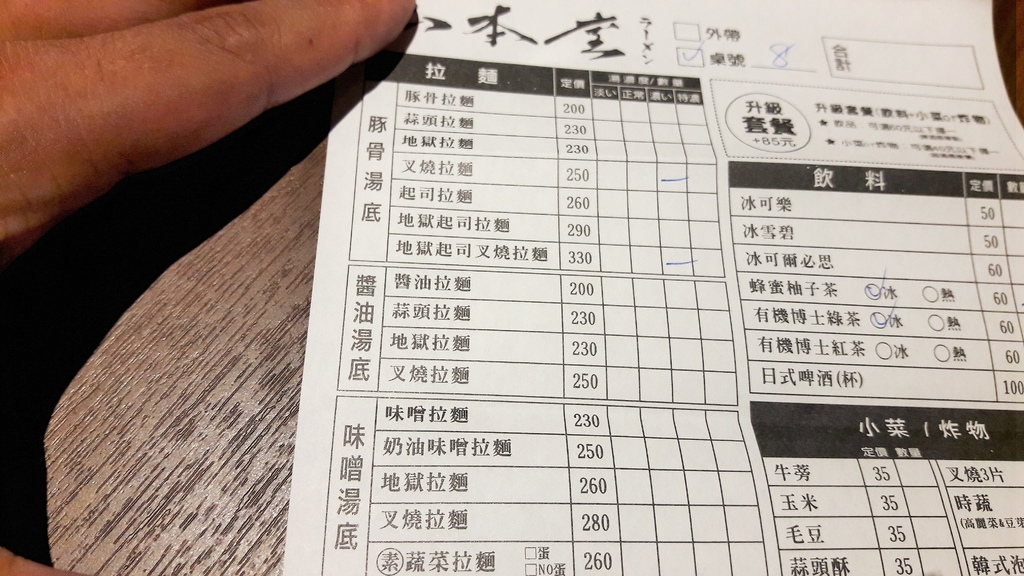 本堂
ラーメン
外帶
桌號 8
合計
拉麵 定價 湯濃度/數量
淡い 正常 濃い 特濃
豚骨湯底
豚骨拉麵 200
蒜頭拉麵 230
地獄拉麵 230
叉燒拉麵 250
起司拉麵 260
地獄起司拉麵 290
地獄起司叉燒拉麵 330
醬油湯底
醬油拉麵 200
蒜頭拉麵 230
地獄拉麵 230
叉燒拉麵 250
味噌湯底
味噌拉麵 230
奶油味噌拉麵 250
地獄拉麵 260
叉燒拉麵 280
素蔬菜拉麵 蛋 NO蛋 260
升級套餐 +85元
升級套餐(飲料+小菜or炸物)
飲料 定價
冰可樂 50
冰雪碧 50
冰可爾必思 60
蜂蜜柚子茶 冰 熱 60
有機博士綠茶 冰 熱 60
有機博士紅茶 冰 熱 60
日式啤酒(杯) 100
小菜/炸物
定價 數量
牛蒡 35
玉米 35
毛豆 35
蒜頭酥 35
叉燒3片
時蔬
(高麗菜&豆芽
韓式泡